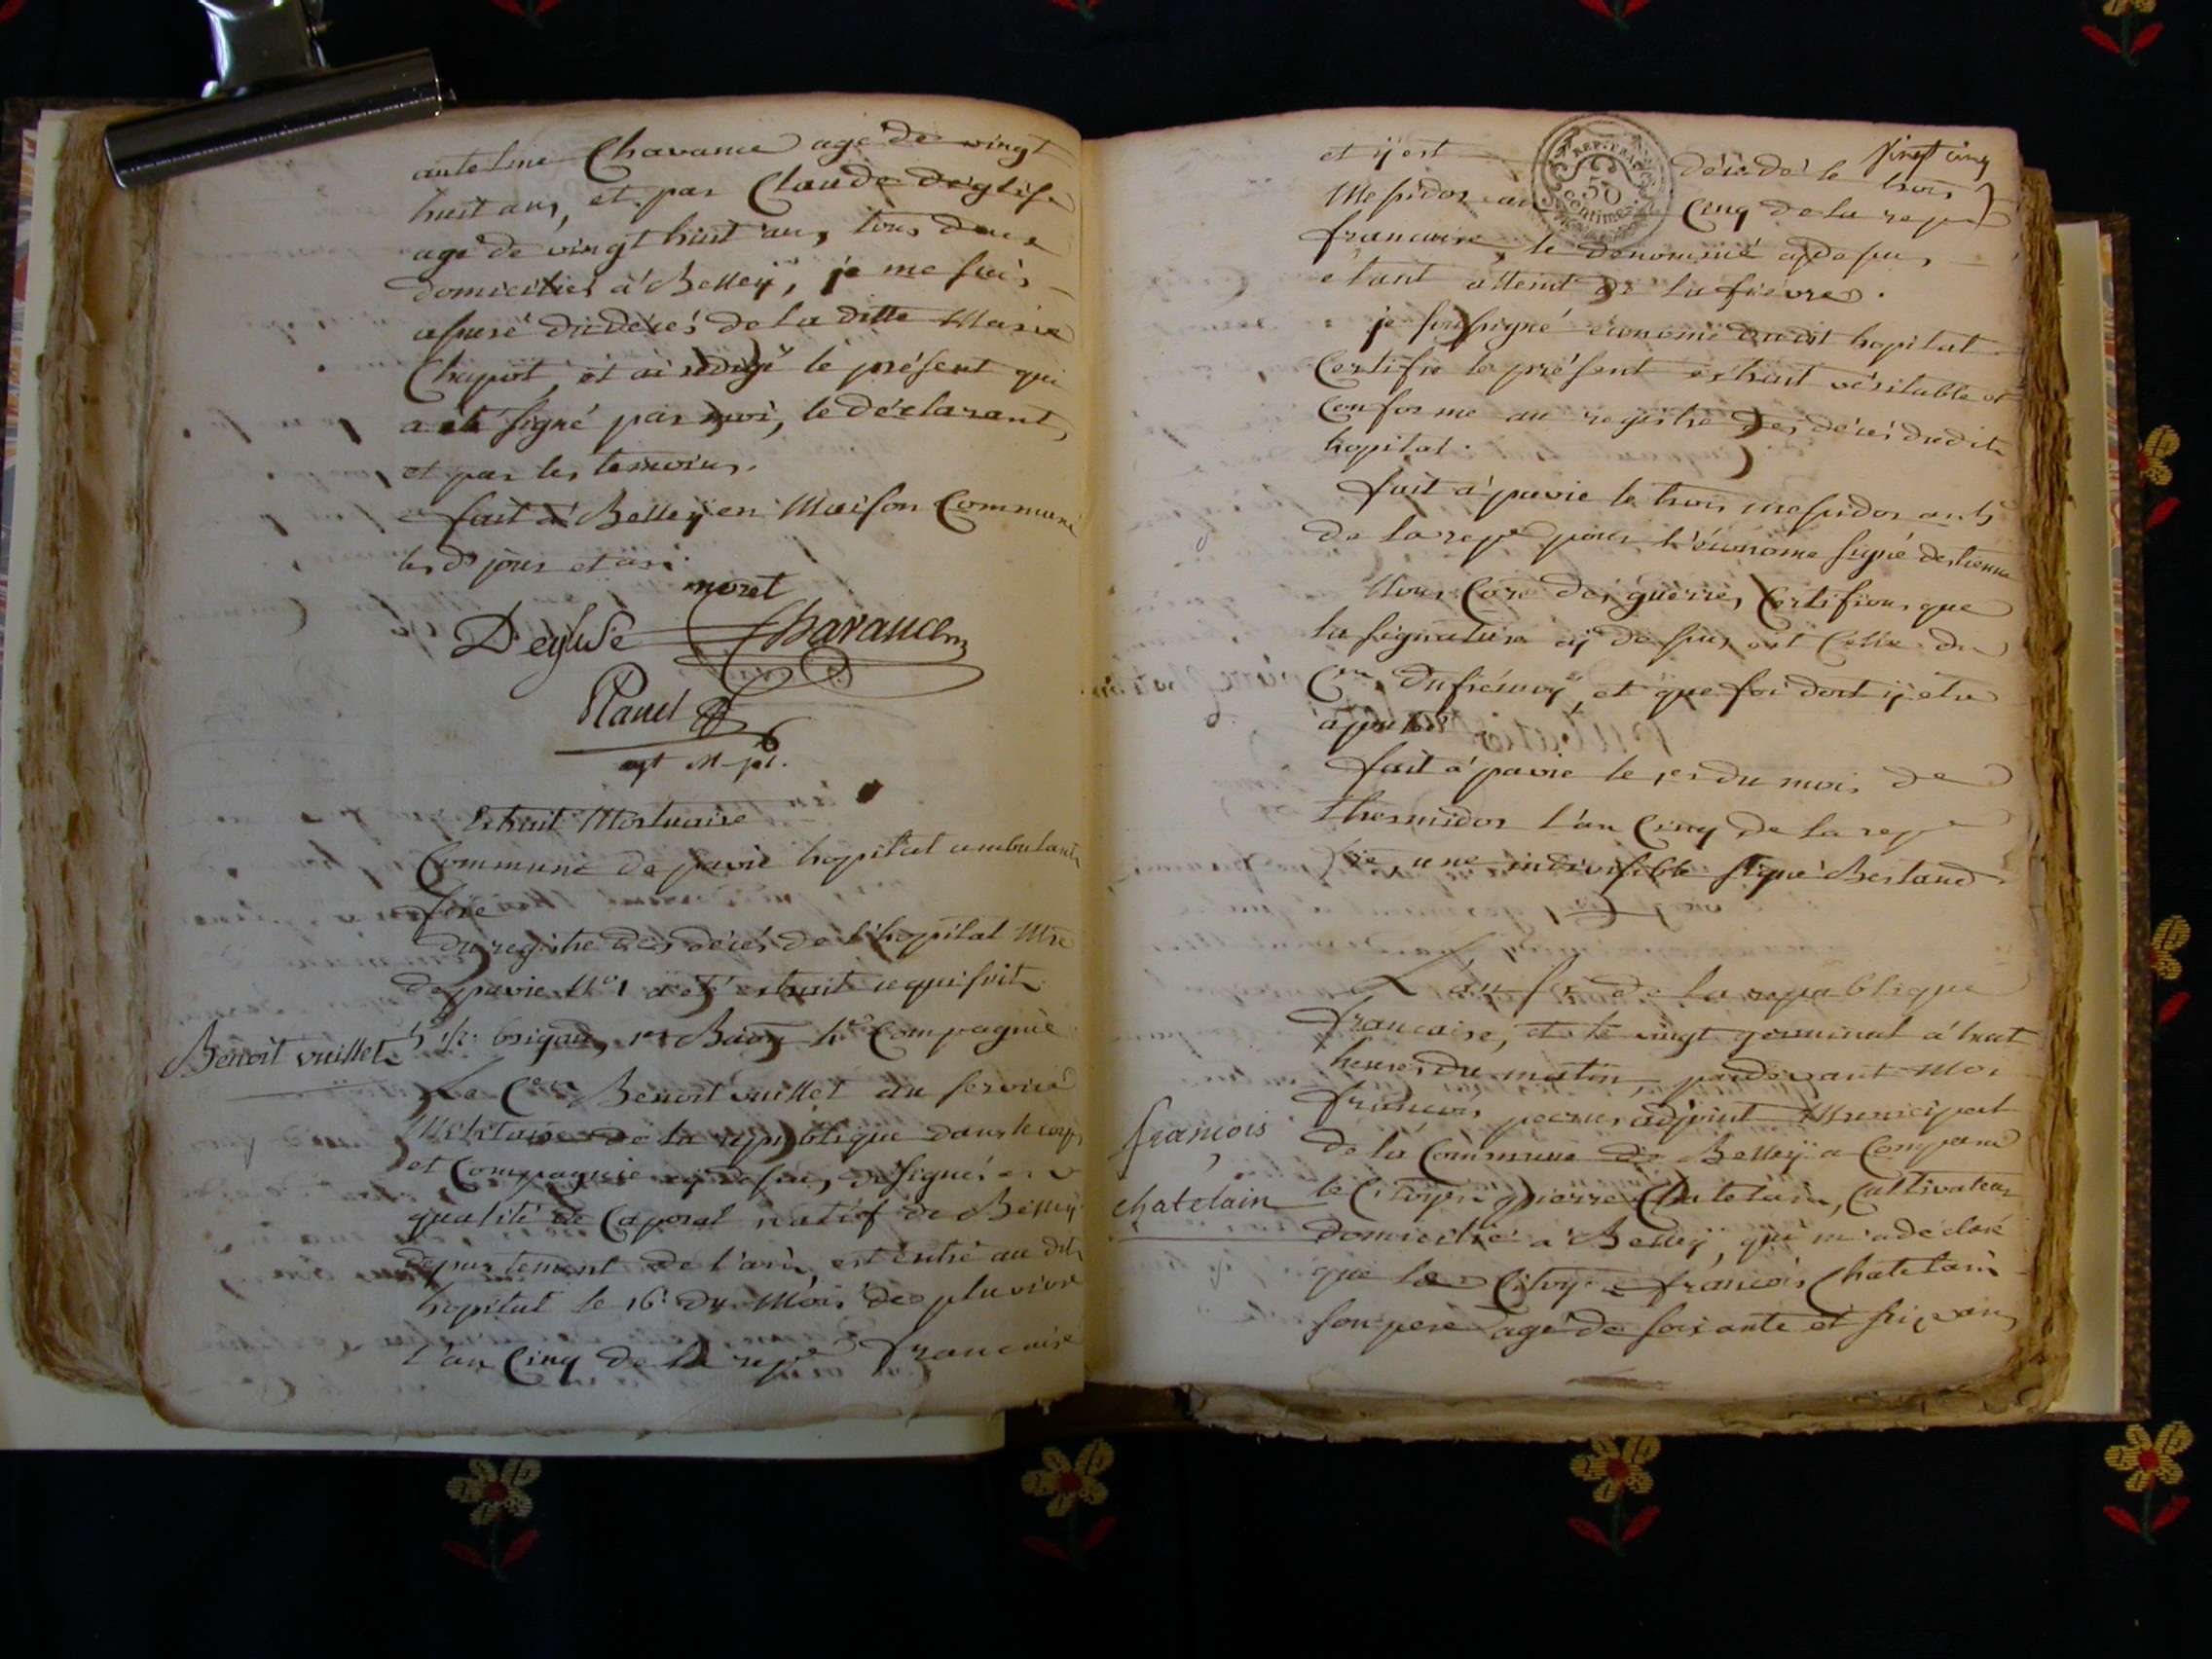 antelme Chavance agé de vingt
huit ans, et par Claude déglise
agé de vingt huit ans, tous deux
domiciliés à Belleÿ, je me suis
assuré du décés de la ditte Marie
Chapot, et ai rédigé le présent qui
a été signé par moi, le déclarant,
et par les temoins.
fait à Belleÿ en Maison Commune
les d. jour et an.
moret
D'egluse Chavance
agt M-pal.
Extrait Mortuaire
Commune de pavie hopital ambulant
fixe
du registre des décés de l'hopital Mre
de pavie No 1 a été extrait ce qui suit
Benoit vuillet
5e 1/2 brigade, 1er Baon 4e Compagnie
Le Cen Benoit vuillet au service
Militaire de la république dans le corps
et Compagnie cy dessus désignés en
qualité de Caporal natif de Belleÿ
département de l'ain, est entré au dit
hopital le 16 du Mois de pluviose
l'an Cinq de la repe francaise
Vingt cinq
et ÿ est décedé le trois
REP. FRA.
50
centimes
Messidor an Cinq de la repe
francaise, le dénommé cy dessus,
étant atteint de la fievre.
je soussigné économe dudit hopital
Certifie le présent extrait véritable et
Conforme au registre des décés dudit
hopital.
fait à pavie le trois messidor an 5e
de la repe pour l'économe signé destienne
Nous Core des guerres Certifions que
la signature cÿ dessus est Celle du
Cen Dufrémoy, et que foi doit ÿ etre
ajoutée
fait à pavie le 1er du mois de
thermidor l'an Cinq de la repe
fse, une indivisible signé Bertaud
L'an six de la republique
francaise, et le vingt germinal à huit
heures du matin, pardevant Moi
françois adjoint Municipal
de la Commune de Belleÿ a Comparu
françois
chatelain
le Citoÿen pierre Chatelain, Cultivateur
domicilié à Belleÿ, qui m'a déclaré
que le Citoÿen françois Chatelain
son pere agé de soixante et six ans